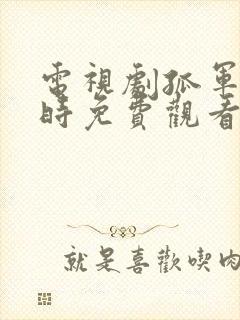 電視劇孤軍
時免費觀看
就是喜歡喫肉